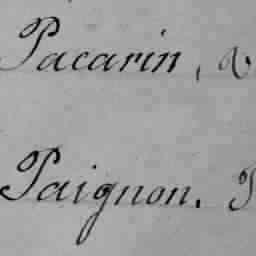 Pacarin, v
Paignon.